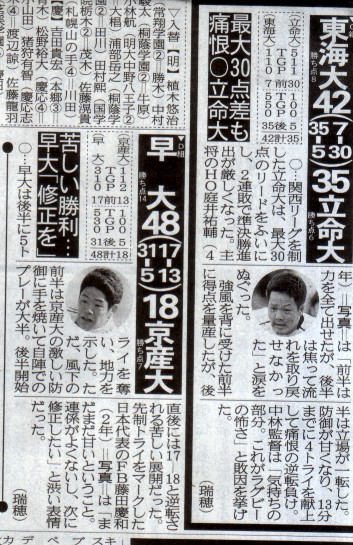 東海大42(7-30 35-5)35立命大
勝ち点8
勝ち点6
最大30点差も
痛恨○立命大
立命大511 30
TGP前TGP
東海大110 7
550 35後5
42計35
○…関西リーグを制
した立命大は、最大30
点のリードをふいに
し、2連敗で準決勝進
出が厳しくなった。主
将のHO庭井祐輔(4
年)=写真=は「前半は
力を全て出せたが、後半
は焦って流
れを取り戻
せなかっ
た」と涙を
ぬぐった。
強風を背に受けた前半
に得点を量産したが、後
半は立場が一転した。
防御が甘くなり、13分
までに4トライを献上
して痛恨の逆転負け。
中林監督は「気持ちの
部分。これがラグビー
の怖さ」と敗因を挙げ
た。
(瑞穂)
D組
早大48(17-13 31-5)18京産大
勝ち点14
勝ち点7
苦しい勝利…
早大「修正を」
京産大112 13
TGP前TGP
早大310 17
100 5
530 31後
48計18
○…早大は後半に5ト
ライを奪
い、地力を
示した。た
だ、風下の
前半は京産大の激しい防
御に手を焼いて自陣での
プレーが大半。後半開始
直後には17-18と逆転さ
れる苦しい展開だった。
先制トライをマークした
日本代表のFB藤田慶和
(2年)=写真=は「ま
だまだ甘いということ。
連係がよくないし、次に
修正したい」と渋い表情
だった。
(瑞穂)
▽入替【明】植木悠治
(常翔学園②)勝木・中村
駿太(桐蔭学園②)牛原・
小林航(明大中野八王子②)
大椙・浦部岳之(桐蔭学
園②)田川・田村熙(国学
院栃木②)茂木・佐藤勇貴